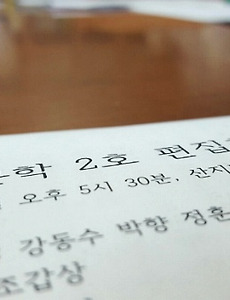 학 2호 편집
오후 5시 30분, 산지
강동수 박향 정훈
조갑상